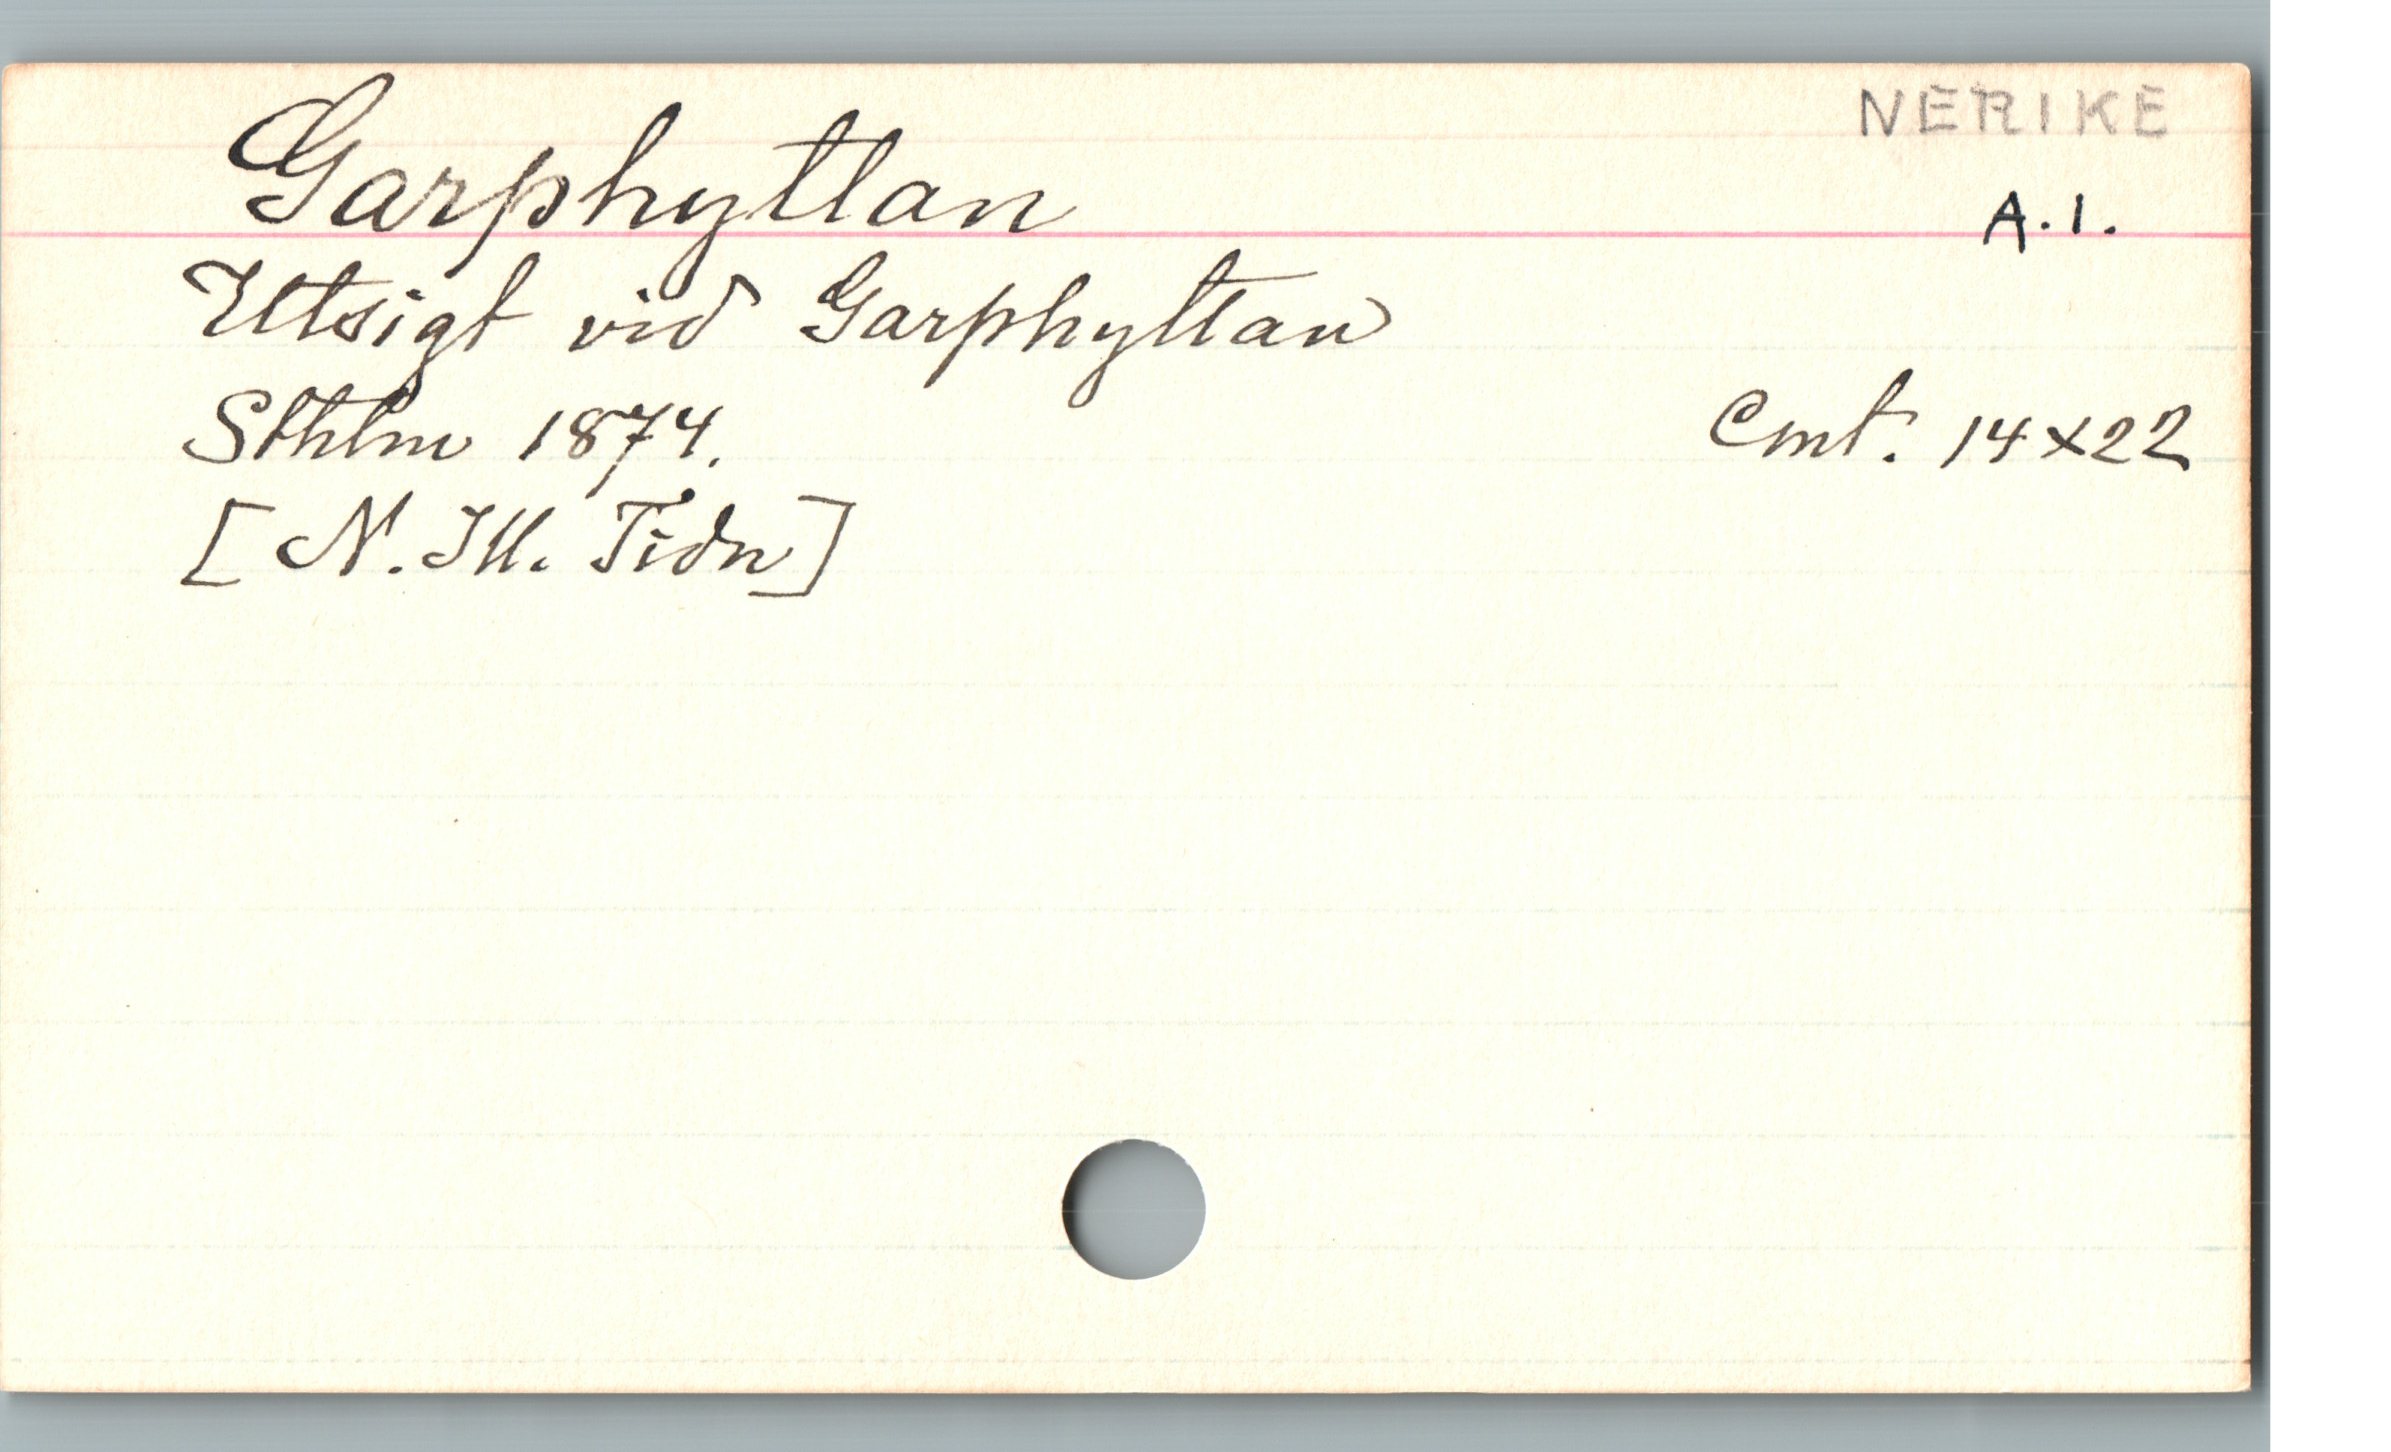 NERIKE
Garphyttan
A.1.
Utsigt vid Garphyttan
Sthlm 1874.
Cmt. 14x22
[N. Ill. Tidn]